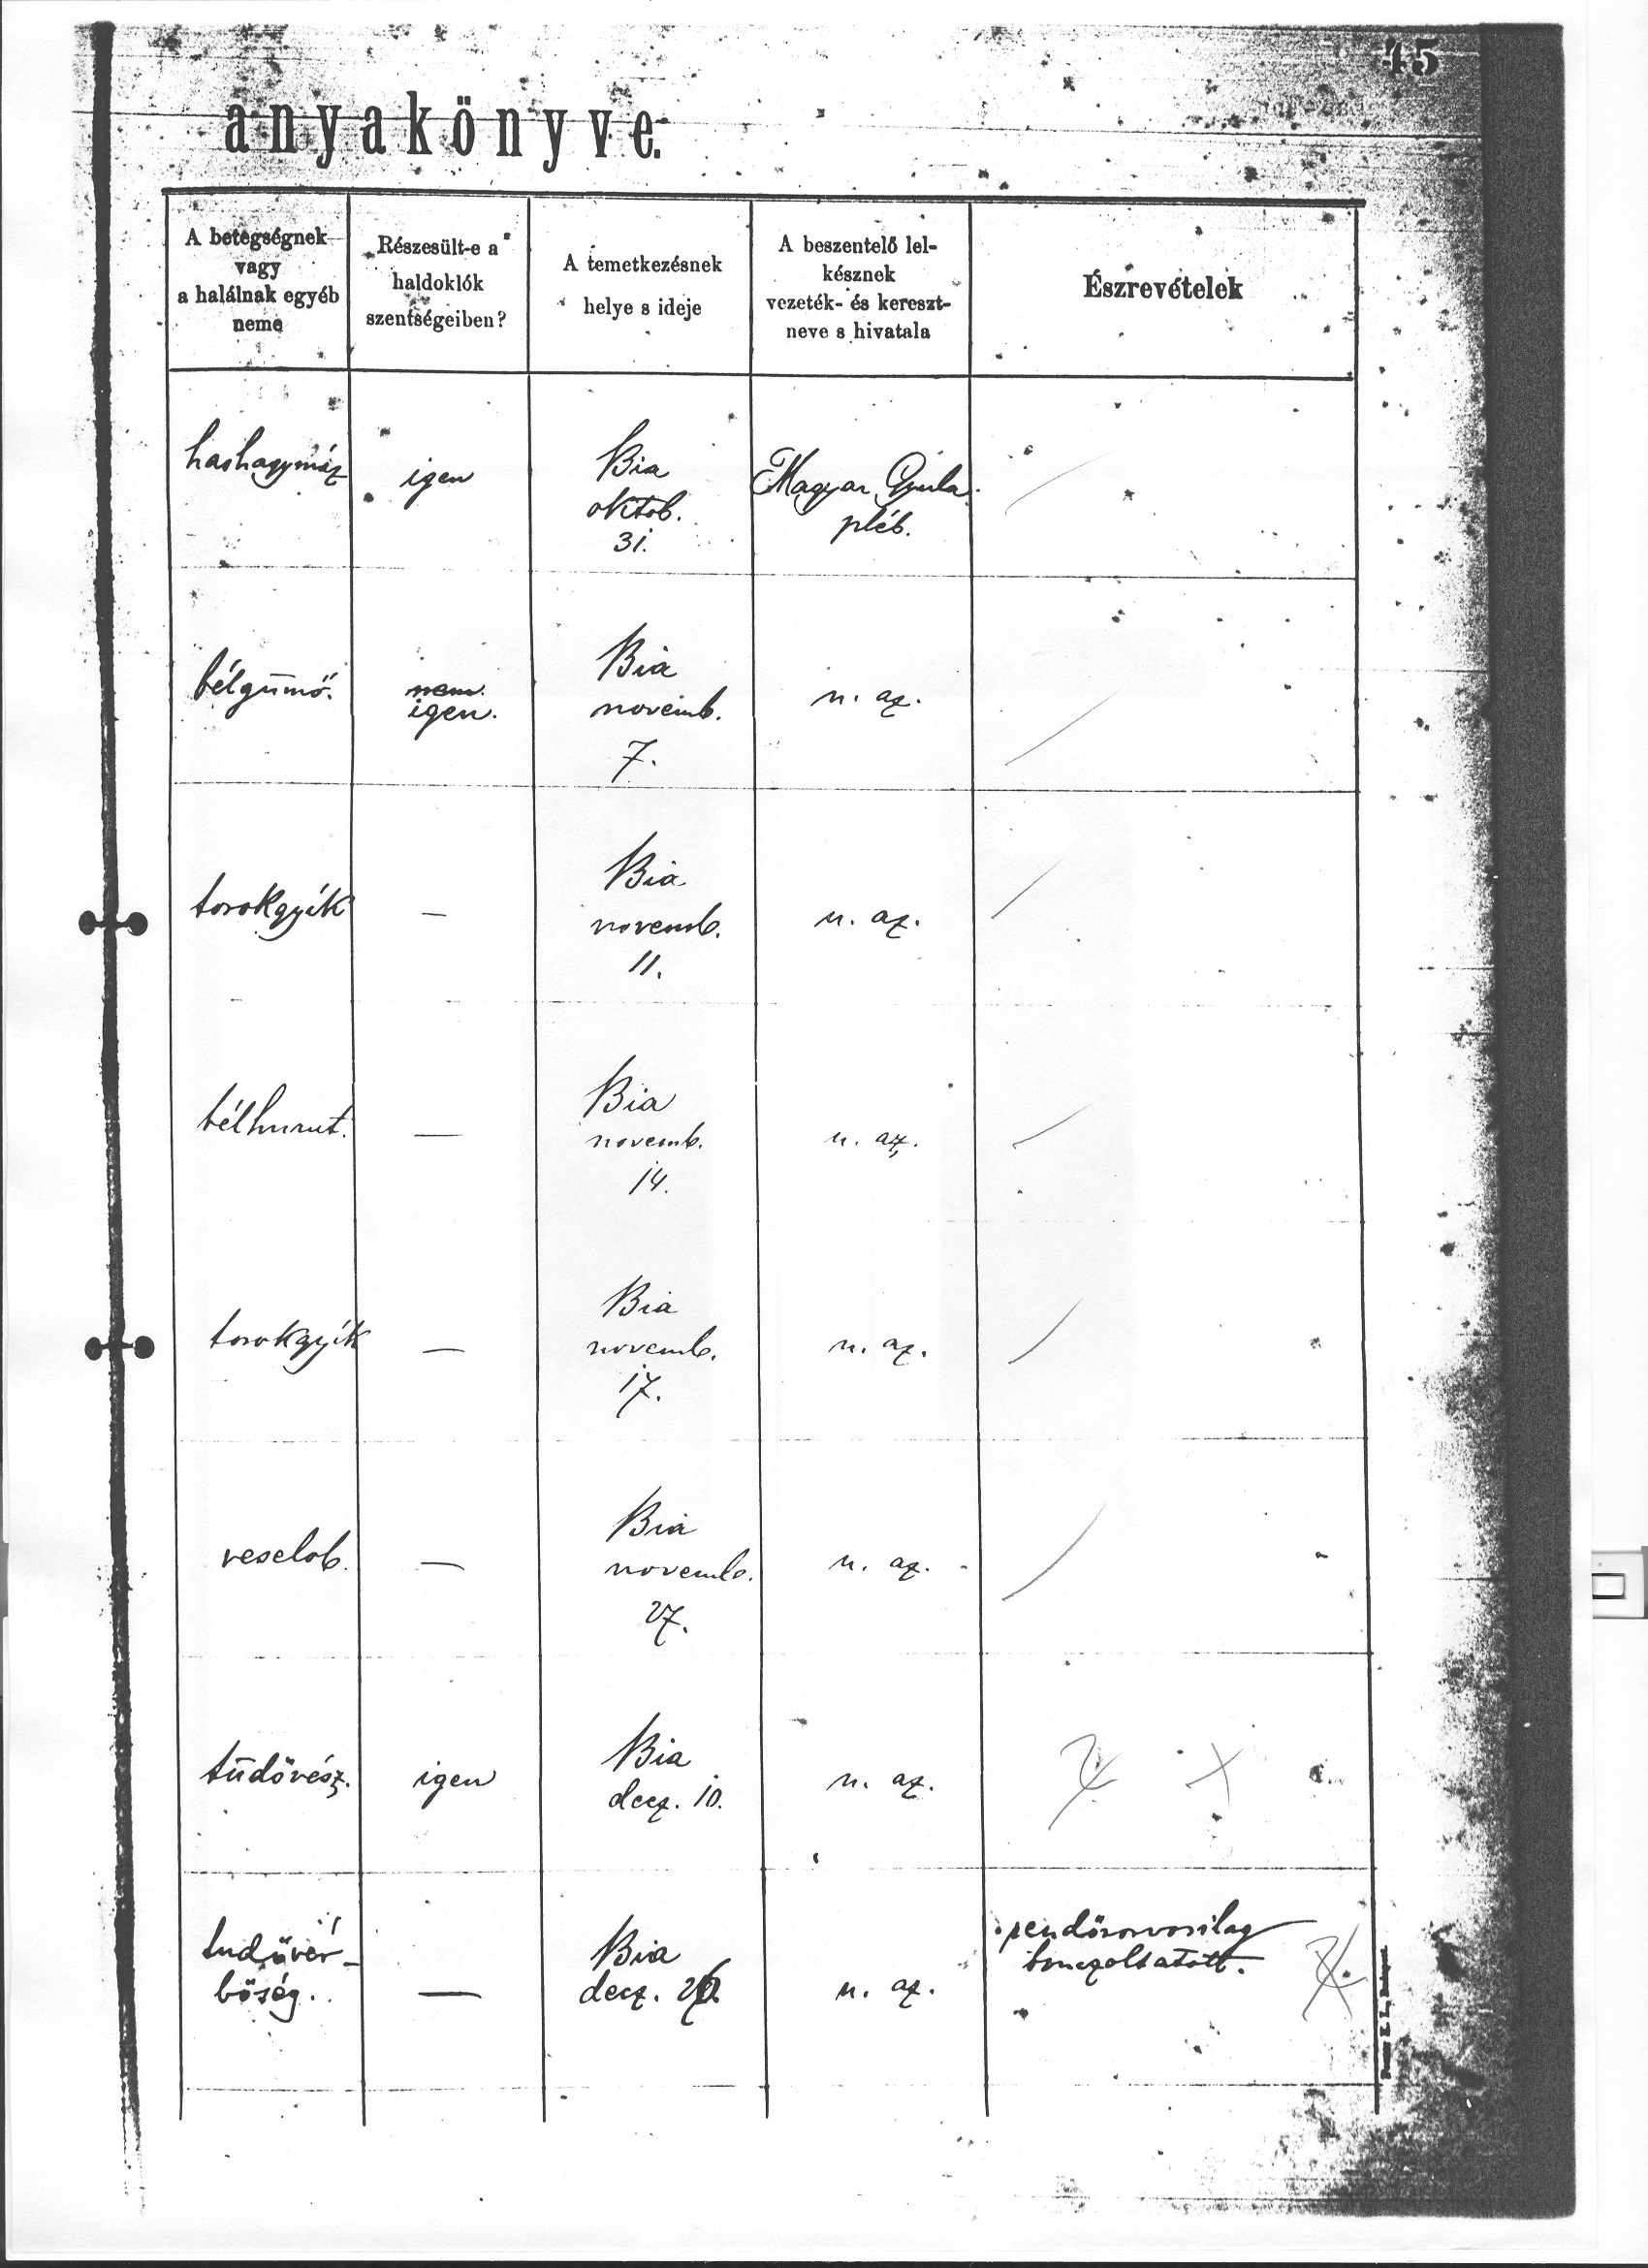 45
anyakönyve.
A betegségnek
vagy
a halálnak egyéb
neme
Részesült-e a
haldoklók
szentségeiben?
A temetkezésnek
helye s ideje
A beszentelő lel-
késznek
vezeték- és kereszt-
neve s hivatala
Észrevételek
hashagymáz
igen
Bia
oktob.
31.
Magyar Gyula
pléb.
bélgümő.
nem.
igen.
Bia
novemb.
7.
u. az.
torokgyík
—
Bia
novemb.
11.
u. az.
bélhurut.
—
Bia
novemb.
14.
u. az.
torokgyík
—
Bia
novemb.
17.
u. az.
veselob.
—
Bia
novemb.
27.
u. az.
tüdővész.
igen
Bia
decz. 10.
u. az.
tüdővér-
bőség.
—
Bia
decz. 26.
u. az.
rendőrorvosilag
bonczoltatott.